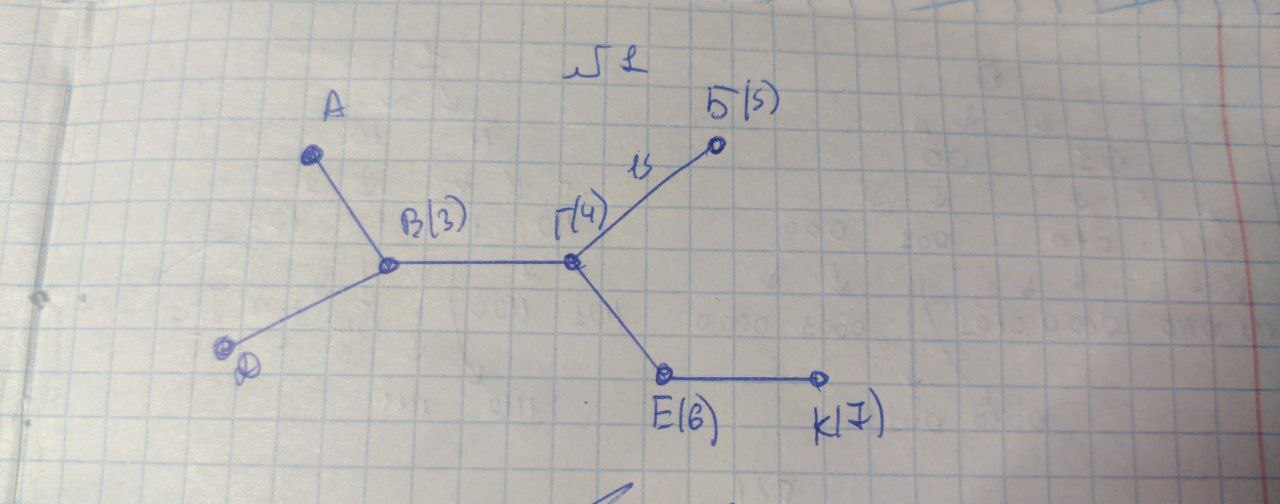 №1
А
Б(5)
15
В(3)
Г(4)
Д
Е(6)
К(7)